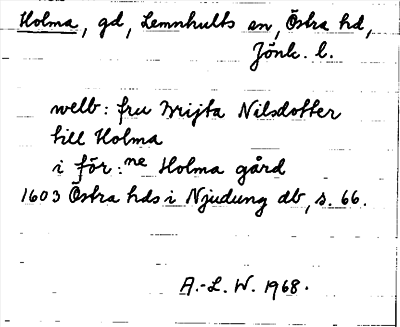 Holma, gd, Lemnhults sn, Östra hd,
Jönk. l.
welb: fru Brijta Nilsdotter
till Holma
i för:ne Holma gård
1603 Östra hds i Njudung db, s. 66.
A.-L. W. 1968.